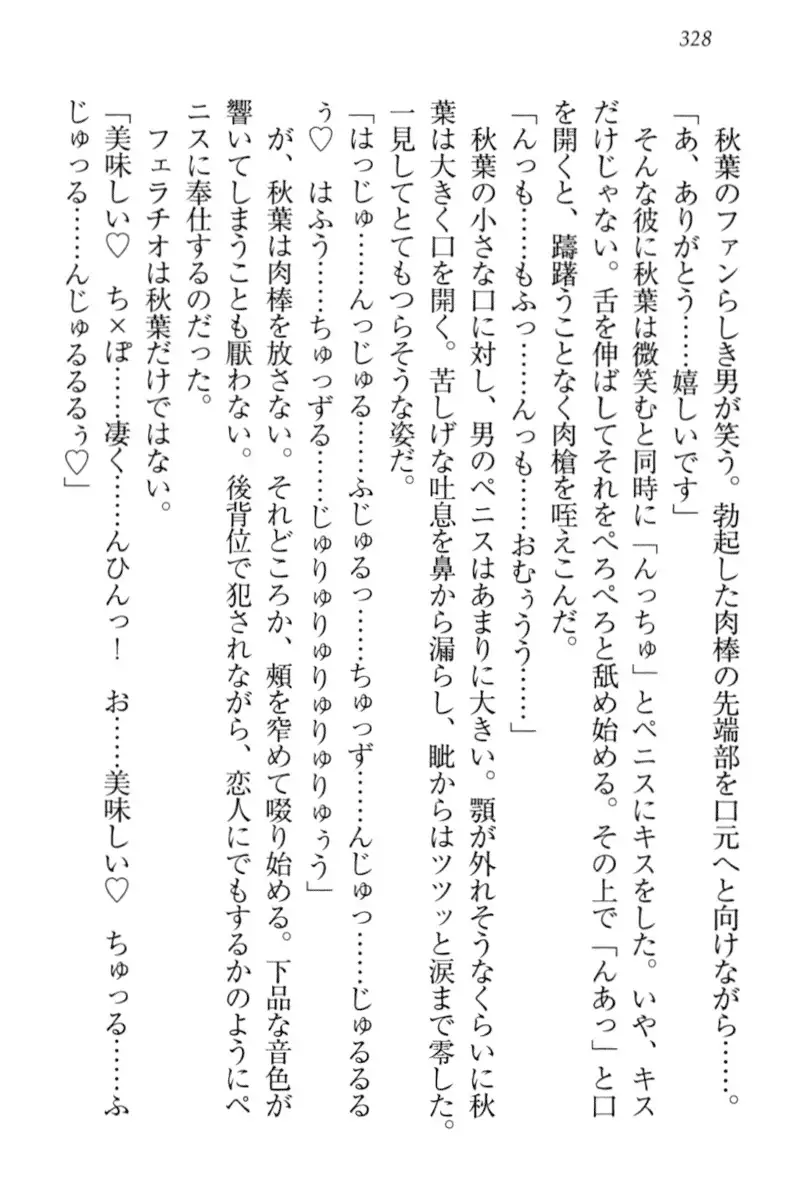 328
秋葉のファンらしき男が笑う。勃起した肉棒の先端部を口元へと向けながら……。
「あ、ありがとう……嬉しいです」
そんな彼に秋葉は微笑むと同時に「んっちゅ」とペニスにキスをした。いや、キス
だけじゃない。舌を伸ばしてそれをぺろぺろと舐め始める。その上で「んあっ」と口
を開くと、躊躇うことなく肉槍を咥えこんだ。
「んっも……もふっ……んっも……おむぅうう……」
秋葉の小さな口に対し、男のペニスはあまりに大きい。顎が外れそうなくらいに秋
葉は大きく口を開く。苦しげな吐息を鼻から漏らし、眦からはツツッと涙まで零した。
一見してとてもつらそうな姿だ。
「はっじゅ……んっじゅる……ふじゅるっ……ちゅっず……んじゅっ……じゅるるる
ぅ♡　はふう……ちゅっずる……じゅりゅりゅりゅりゅりゅぅう」
が、秋葉は肉棒を放さない。それどころか、頬を窄めて啜り始める。下品な音色が
響いてしまうことも厭わない。後背位で犯されながら、恋人にでもするかのようにペ
ニスに奉仕するのだった。
フェラチオは秋葉だけではない。
「美味しい♡　ち×ぽ……凄く……んひんっ！　お……美味しい♡　ちゅっる……ふ
じゅっる……んじゅるるるぅ♡」